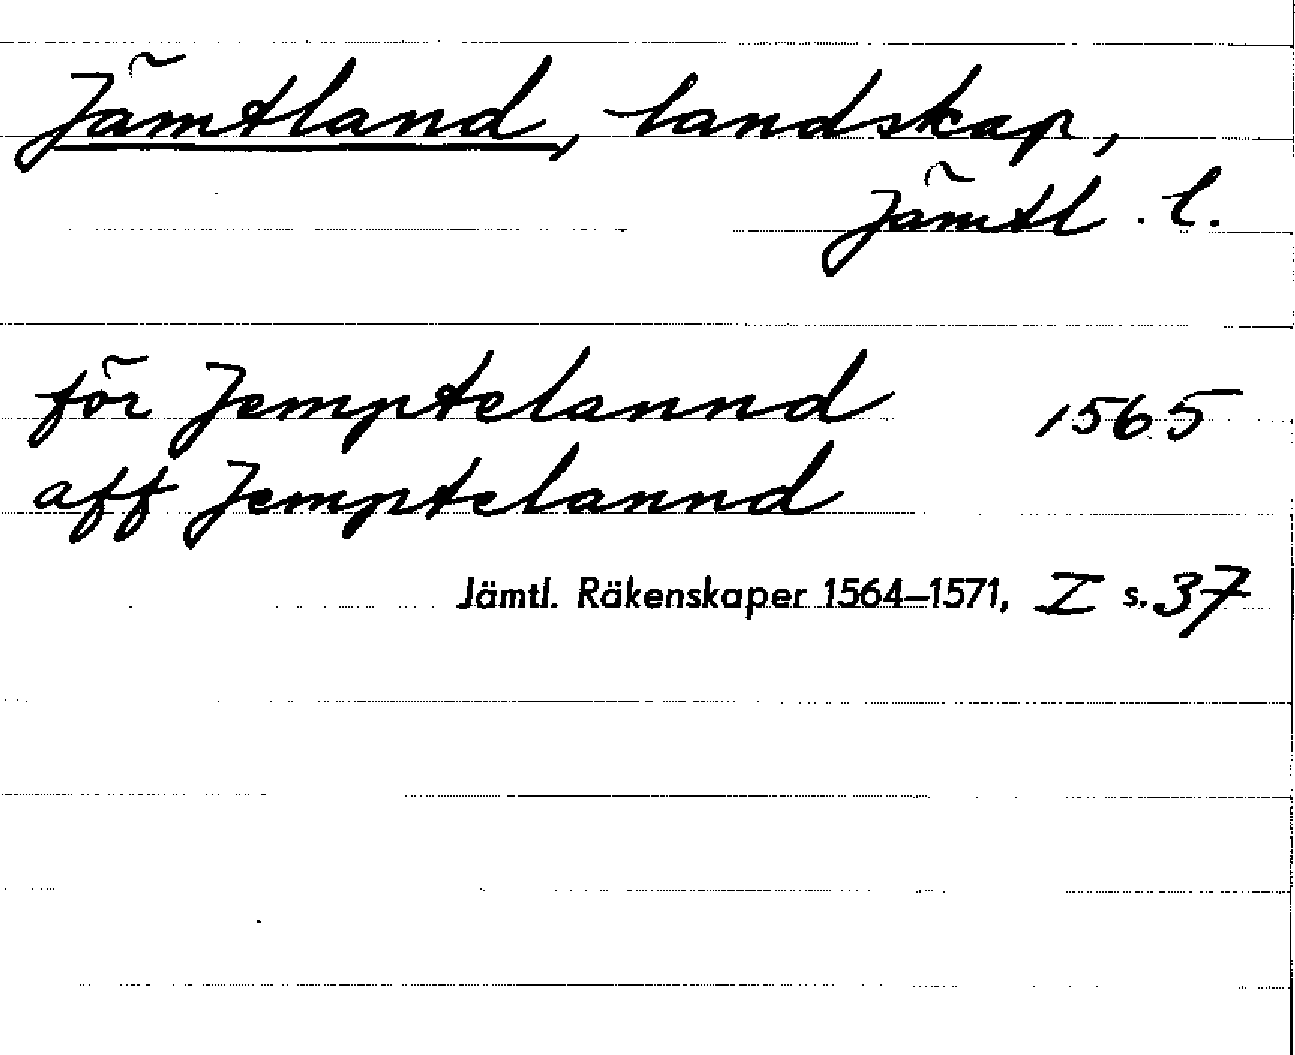 Jämtland, landskap,
Jämtl. l.
för Jemptelannd 1565
aff Jemptelannd
Jämtl. Räkenskaper 1564–1571, I s. 37